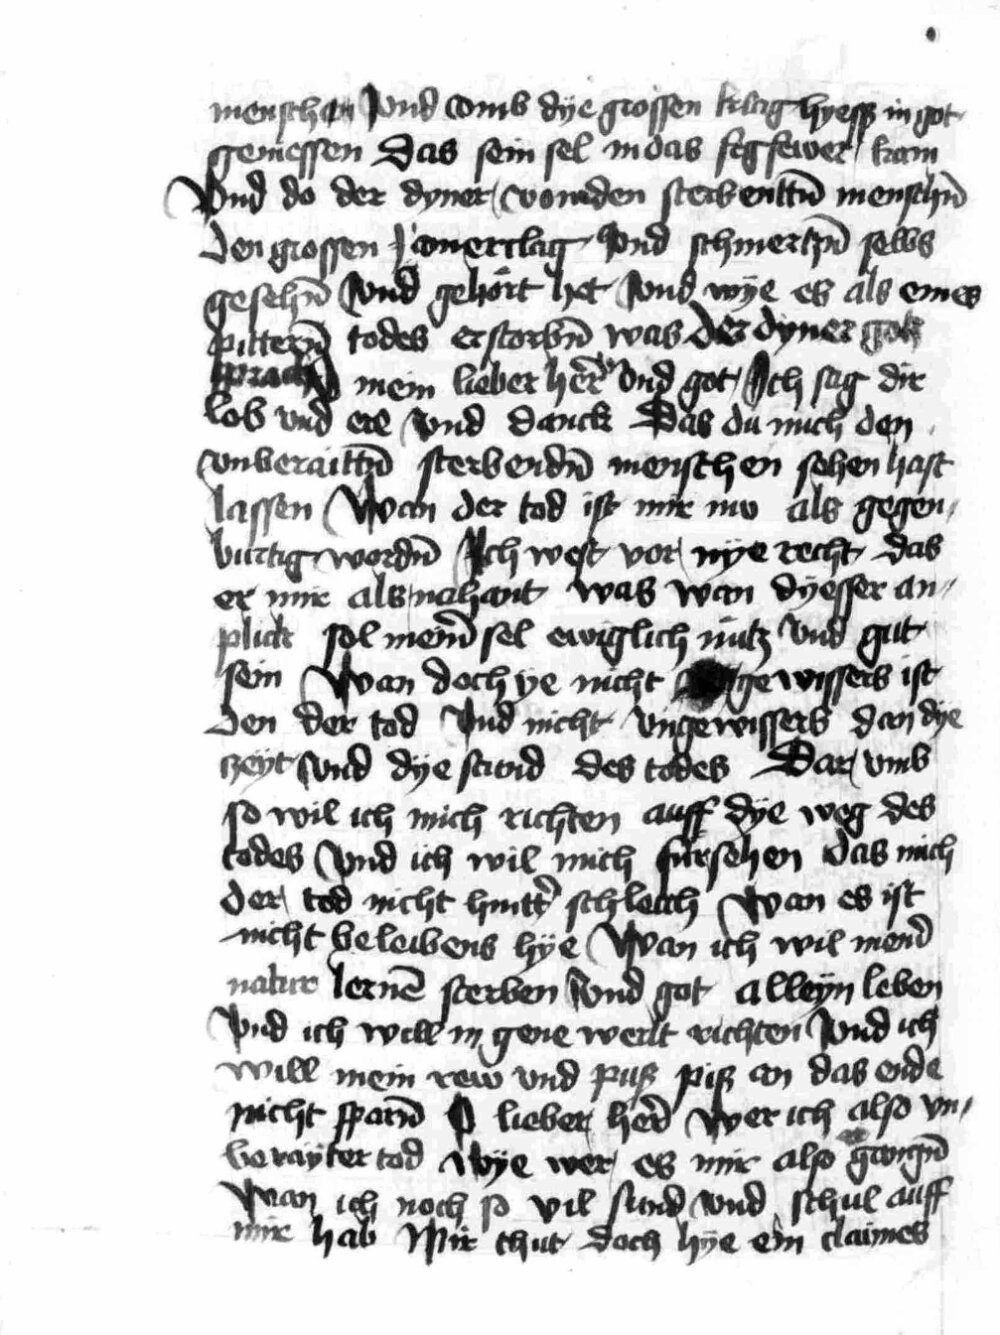 menschen Vnd vmb dÿe grossen klag hyesß in got
geniessen Das sein sel in das fegfewer kam
Vnd do der dyner von den sterbenttñ menschñ
Den grossen Jamerclag Vnd schmertzñ selbs
gesehñ Vnd gehört het Vnd wÿe es als eines
pitterñ todes erstorbñ was Der dÿner gotz
sprach mein lieber her̃ Vnd got Ich sag dir
lob vnd ere Vnd danck Das du mich den
vnberaittñ sterbendñ menschen sehen hast
lassen Wan der tod ist mir nw als gegen
burtig wordñ Ich west vor nÿe recht das
er mir als nahant was wan dÿesser an
plick sol mein̄ sel ewiglich nütz Vnd gut
sein Wan doch ÿe nicht gewissers ist
Den der tod Vnd nicht vngewissers dan dÿe
zeÿt Vnd dÿe stund des todes Dar vmb
so wil ich mich richten auff dÿe weg des
todes Vnd ich wil mich fürsehen das mich
der tod nicht hintter schleich Wan es ist
nicht beleibens hÿe Wan ich wil meinẽ
natur lernẽ sterben Vnd got alleÿn leben
Vnd ich will in gene werlt richten Vnd ich
will mein rew vnd puß piß an das ende
nicht sparñ O lieber her̃ Wer ich also vn
beraÿter tod Wÿe wer es mir also gangñ
Wan ich noch so vil sund Vnd schul auff
mir hab Mir thut doch hÿe ein claines